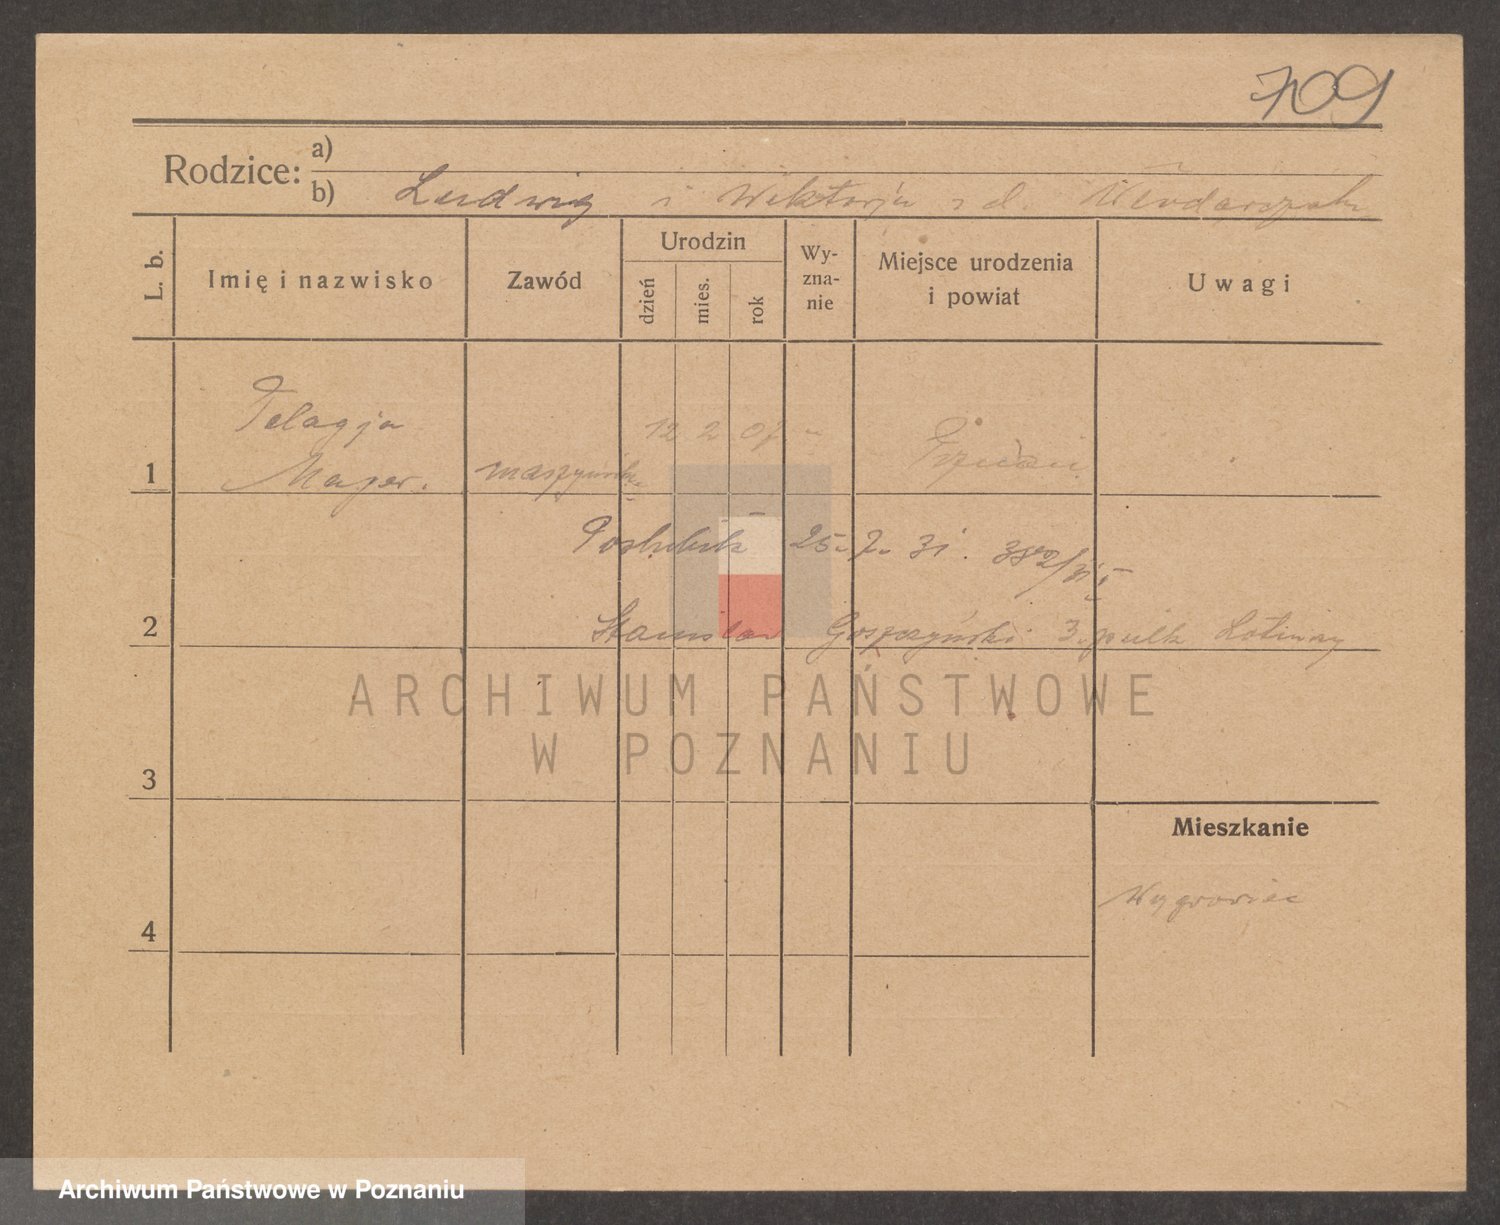 709
Rodzice: a)
b) Ludwig i Wiktorja z d.
L. b. Imię i nazwisko Zawód Urodzin dzień mies. rok Wy-zna-nie Miejsce urodzenia i powiat Uwagi
Pelagja 12 2 07
1 Majer.
25. 7. 31. 382/31
2 Stanisław Goszczyński 3. pułk Lotniczy
ARCHIWUM PAŃSTWOWE
W POZNANIU
3
Mieszkanie
4
Archiwum Państwowe w Poznaniu